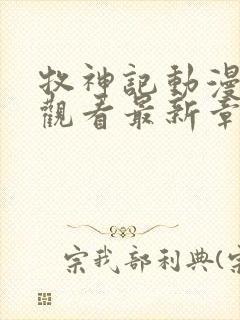 牧神記動漫
觀看最新章
宗我部利典(宗